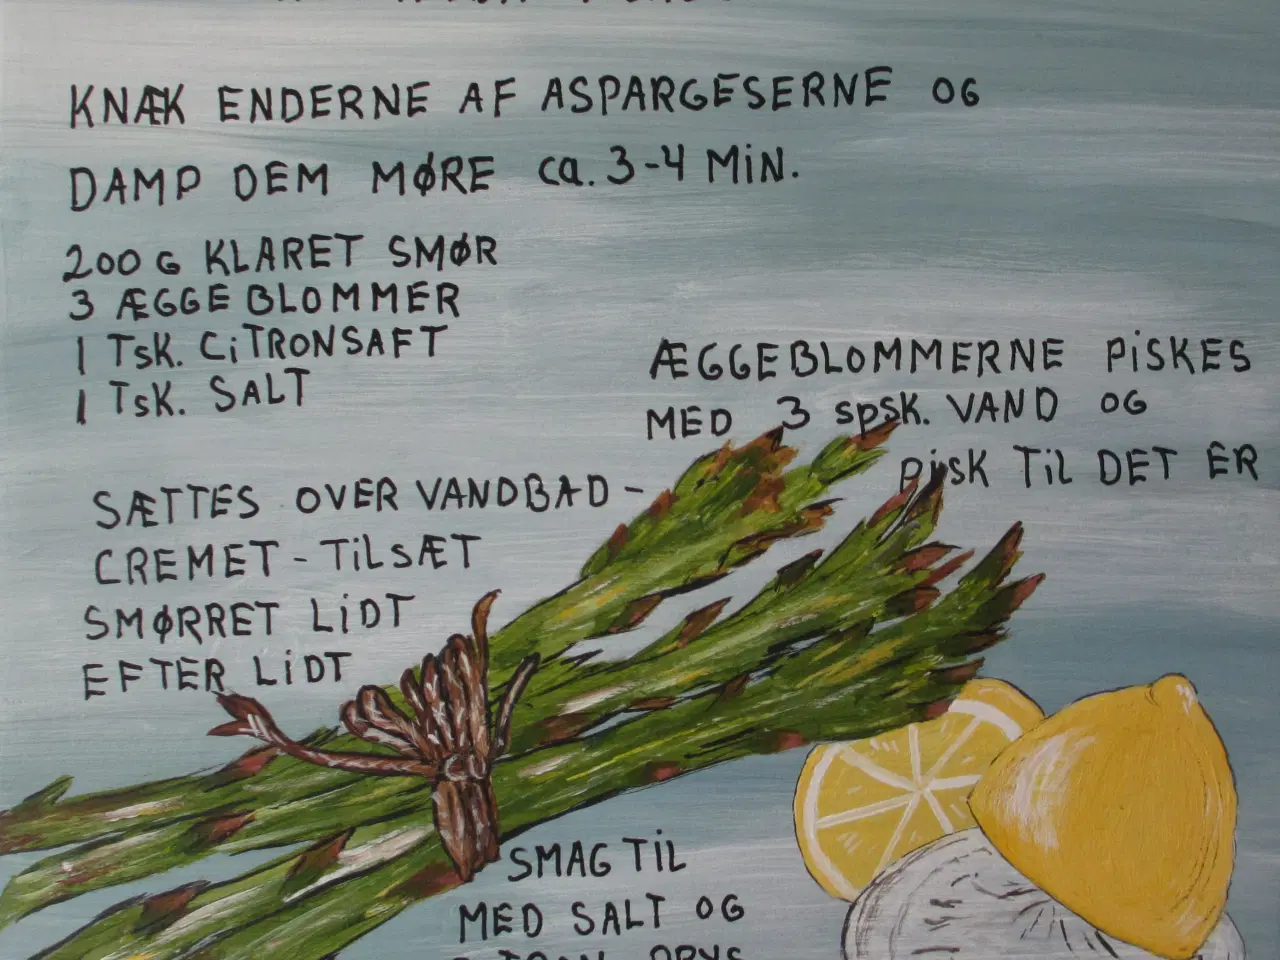 KNÆK ENDERNE AF ASPARGESERNE OG
DAMP DEM MØRE ca. 3-4 MiN.
200 G KLARET SMØR
3 ÆGGEBLOMMER
1 TsK. CiTRONSAFT
1 TsK. SALT
ÆGGEBLOMMERNE PiSKES
MED 3 spsk. VAND OG
PiSK TiL DET ER
SÆTTES OVER VANDBAD -
CREMET - TiLSÆT
SMØRRET LiDT
EFTER LiDT
SMAG TiL
MED SALT OG